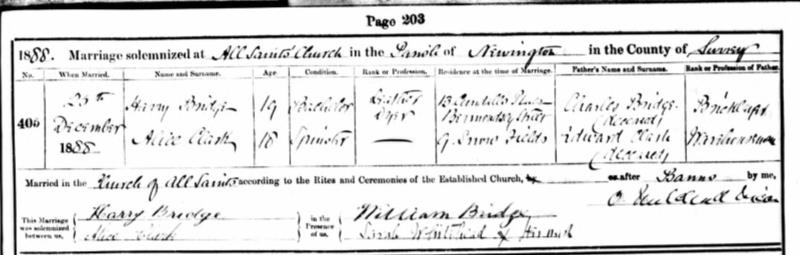 Page 203
1888. Marriage solemnized at All Saints Church in the Parish of Newington in the County of Surrey
No. When Married. Name and Surname. Age Condition. Rank or Profession. Residence at the time of Marriage. Father's Name and Surname. Rank or Profession of Father.
405
25th December 1888
Harry Bridge 19 Bachelor Leather Dyer Bermondsey Street Charles Bridge (deceased)
Alice Clark 18 Spinster — 9 Snow Fields Edward Clark (deceased) Warehouseman
Married in the Church of All Saints according to the Rites and Ceremonies of the Established Church, by or after Banns by me,
This Marriage was solemnized between us, Harry Bridge in the Presence of us, William Bridge
Alice Clark Sarah Whitehead X Her Mark